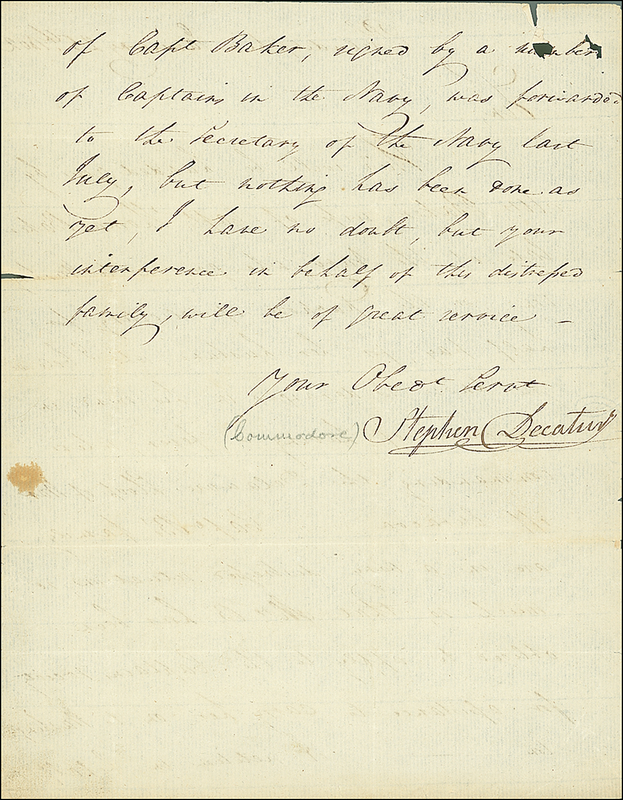 of Capt Baker, signed by a number
of Captains in the Navy, was forwarded
to the Secretary of the Navy last
July, but nothing has been done as
yet, I have no doubt, but your
interference in behalf of this distressed
family, will be of great service —
Your Obedt Servt
(Commodore) Stephen Decatur